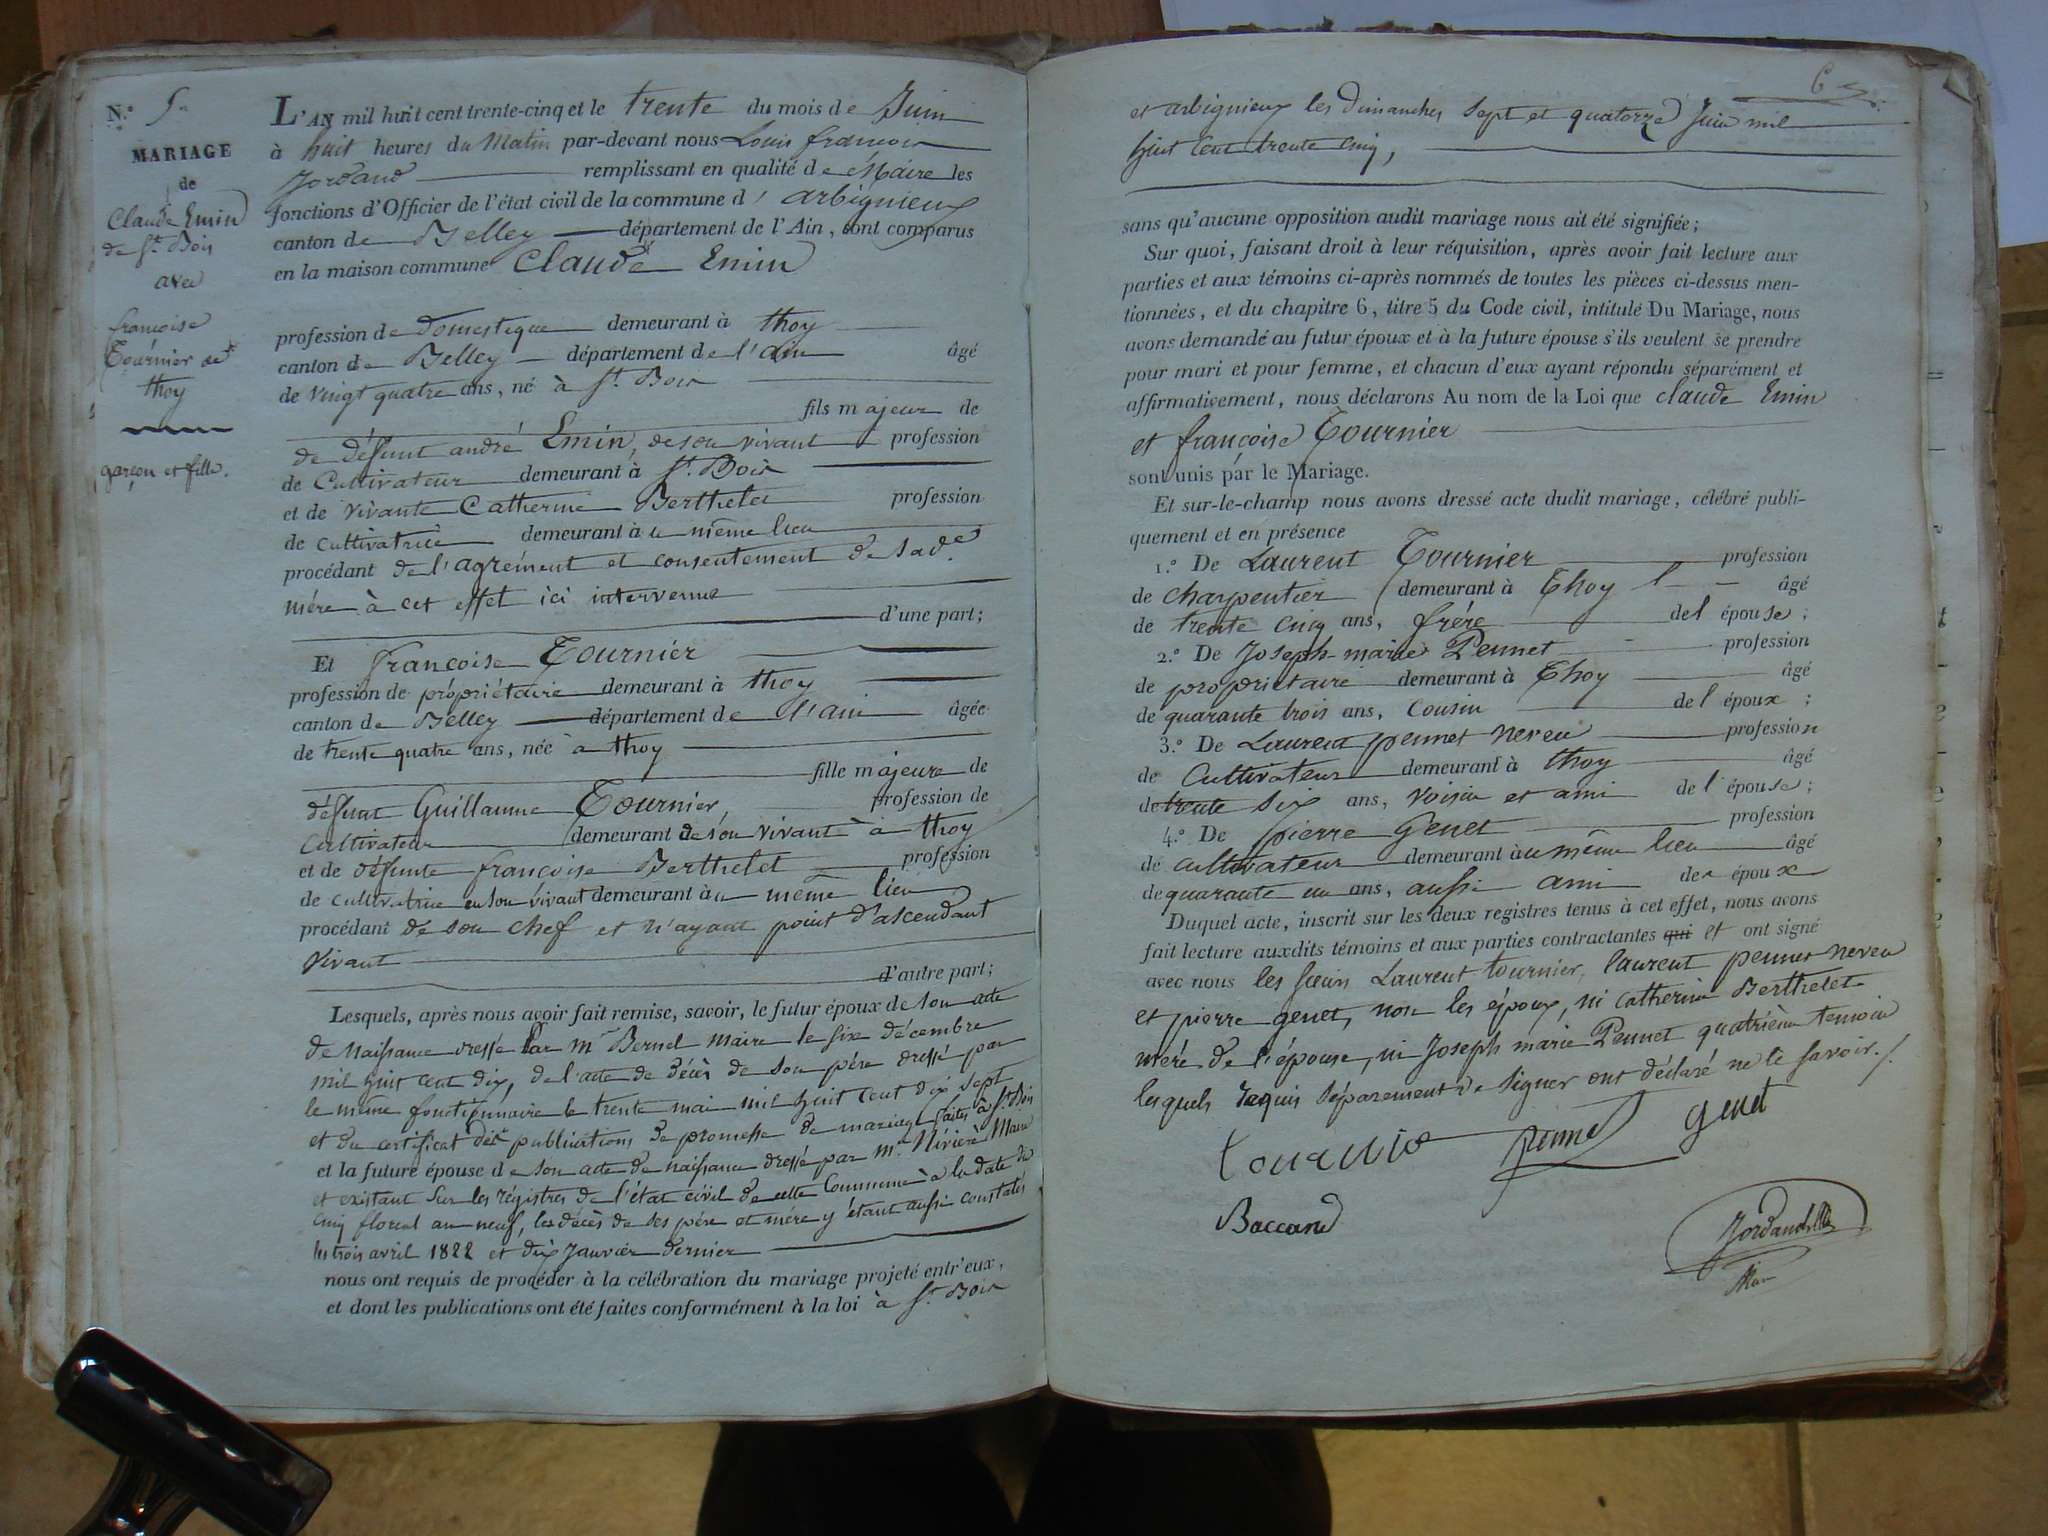 N.° 5.
MARIAGE
de
Claude Emin
de St. Bois
avec
françoise
Tournier de
thoy
garçon et fille.
L'AN mil huit cent trente-cinq et le trente du mois de Juin
à huit heures du Matin par-devant nous Louis françois
Jordand remplissant en qualité de Maire les
fonctions d'Officier de l'état civil de la commune d'arbignieux
canton de Belley département de l'Ain, sont comparus
en la maison commune Claude Emin
profession de Domestique demeurant à thoy
canton de Belley département de l'ain âgé
de vingt quatre ans, né à St. Bois
fils majeur de
de défunt andré Emin, de son vivant profession
de Cultivateur demeurant à St. Bois
et de vivante Catherine Berthelet profession
de cultivatrice demeurant à u même lieu
procédant de l'agrément et consentement de sa de.
mère à cet effet ici intervenue
d'une part;
Et françoise Tournier
profession de propriétaire demeurant à thoy
canton de Belley département de l'ain âgée
de trente quatre ans, née à thoy
fille majeure de
défunt Guillaume Tournier, profession de
Cultivateur demeurant de son vivant à thoy
et de défunte françoise Berthelet profession
de cultivatrice en son vivant demeurant à u même lieu
procédant de son chef et n'ayant point d'ascendant
vivant
d'autre part;
Lesquels, après nous avoir fait remise, savoir, le futur époux de son acte
de Naissance dressé par mr Bernel maire le six décembre
mil huit cent dix, de l'acte de décès de son père dressé par
le même fonctionnaire le trente mai mil huit cent dix sept
et du certificat des publications de promesse de mariage faites à St. Bois
et la future épouse de son acte de naissance dressé par mr. Nivière Maire
et existant sur les régistres de l'état civil de cette Commune à la date du
cinq floreal an neuf, les décès de ses père et mère y étant aussi constatés
les trois avril 1822 et dix Janvier dernier
nous ont requis de procéder à la célébration du mariage projeté entr'eux,
et dont les publications ont été faites conformément à la loi à St. Bois
6
et arbignieux les dimanches sept et quatorze Juin mil
huit cent trente cinq,
sans qu'aucune opposition audit mariage nous ait été signifiée;
Sur quoi, faisant droit à leur réquisition, après avoir fait lecture aux
parties et aux témoins ci-après nommés de toutes les pièces ci-dessus men-
tionnées, et du chapitre 6, titre 5 du Code civil, intitulé Du Mariage, nous
avons demandé au futur époux et à la future épouse s'ils veulent se prendre
pour mari et pour femme, et chacun d'eux ayant répondu séparément et
affirmativement, nous déclarons Au nom de la Loi que claude Emin
et françoise Tournier
sont unis par le Mariage.
Et sur-le-champ nous avons dressé acte dudit mariage, célébré publi-
quement et en présence
1.° De Laurent Tournier profession
de charpentier demeurant à Thoy âgé
de trente cinq ans, frère de l'épouse;
2.° De Joseph-marie Pennet profession
de propriétaire demeurant à Thoy âgé
de quarante trois ans, Cousin de l'époux;
3.° De Laurent pennet neveu profession
de Cultivateur demeurant à thoy âgé
de trente six ans, voisin et ami de l'épouse;
4.° De pierre Genet profession
de cultivateur demeurant à u même lieu âgé
de quarante un ans, aussi ami de l époux
Duquel acte, inscrit sur les deux registres tenus à cet effet, nous avons
fait lecture auxdits témoins et aux parties contractantes qui et ont signé
avec nous les sieurs Laurent tournier, laurent pennet neveu
et pierre genet, non les époux, ni Catherine Berthelet
mère de l'épouse, ni Joseph marie Pennet quatrième temoin
lesquels requis séparement de signer ont déclaré ne le savoir./.
tournier pennet genet
Baccand
Jordand